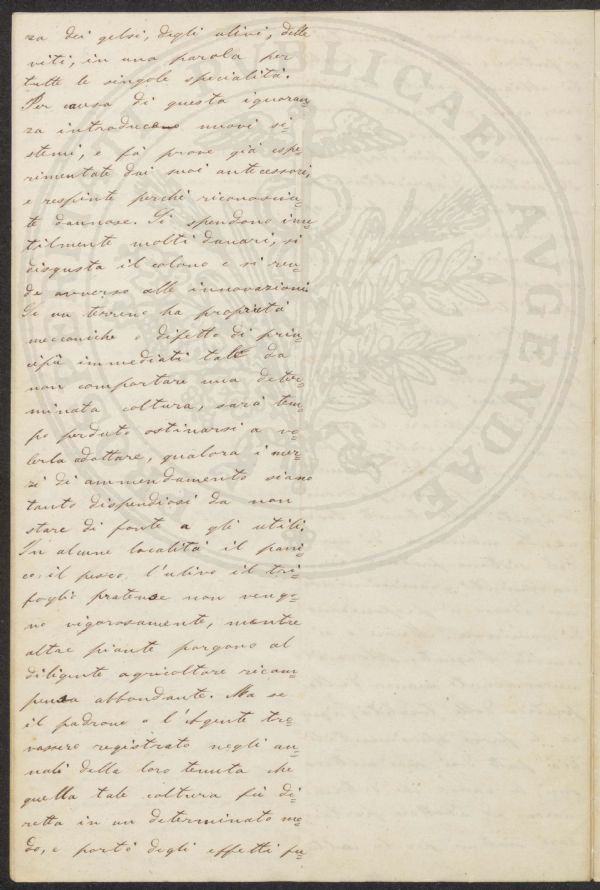 za dei gelsi, degli ulivi, delle
viti, in una parola per
tutte le singole specialità.
Per causa di questa ignoran=
za introducono nuovi si=
stemi, e fà prove già espe=
rimentate dai suoi antecessori,
e respinte perchè riconosciu=
te dannose. Si spendono inu=
tilmente molti danari, si
disgusta il colono e si ren=
de avverso alle innovazioni.
Se un terreno ha proprietà
meccaniche o difetto di prin=
cipii immediati tale da
non comportare una deter=
minata coltura, sarà tem=
po perduto ostinarsi a vo=
lerla adottare, qualora i mez=
zi di ammendamento siano
tanto dispendiosi da non
stare di fonte a gli utili.
In alcune località il pani=
co, il pesco, l'ulivo il tri=
foglio pratense non veng=
no vigorosamente, mentre
altre piante porgono al
diligente agricoltore ricom=
pensa abbondante. Ma se
il padrone o l'Agente tro=
vassero registrato negli an=
nali della loro tenuta che
quella tale coltura fù di=
retta in un determinato mo=
do, e portò degli effetti fu=
PUBLICAE
AVGENDAE